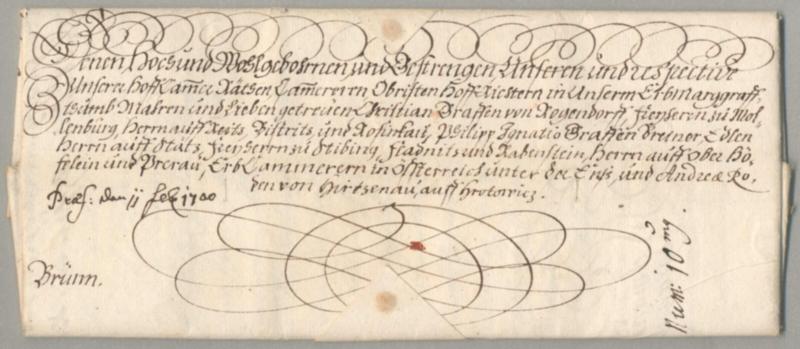 Denen, Hoch und Wohlgebohrnen und Gestrengen Unseren und respective
Unsere Hoff Cammer Räthen, Cammereren Obristen Hoff Richtern in Unserm Erb Marggraff-
thumb Mähren und Lieben getreuen Christian Graffen von Rogendorff, Freyherrn zu Mol-
lenburg, Herrn auff Reits, Bistrits und Roschkau, Philipp Ignatio Graffen Breiner, Edlen
Herrn auff Stäts, Freyherrn zu Stibing, Fladnits und Rabenstein, Herrn auff Ober Hö-
flein und Prerau, Erb Cammerern in Össterreich unter der Enß, und Andreæ Ro-
den von Hirtzenau, auff Hrotowitz.
Præs: den 11 Feb 1700
Brünn.
Num: 10